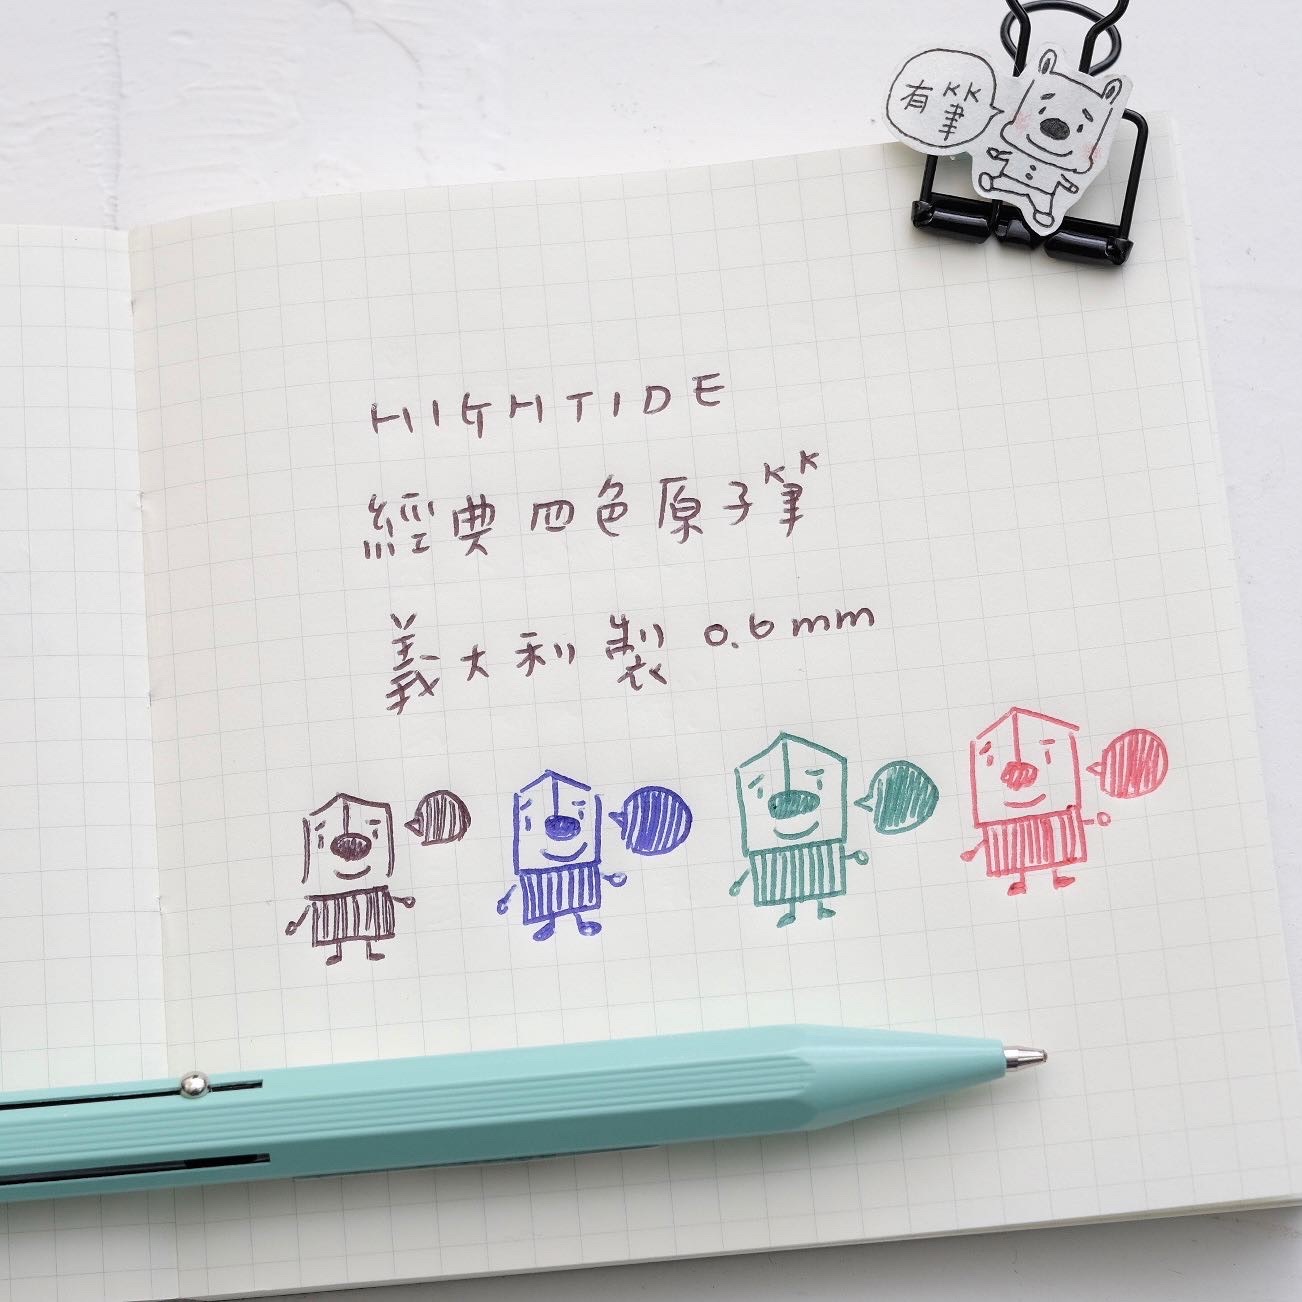 有筆
HIGHTIDE
經典四色原子筆
義大利製 0.6mm